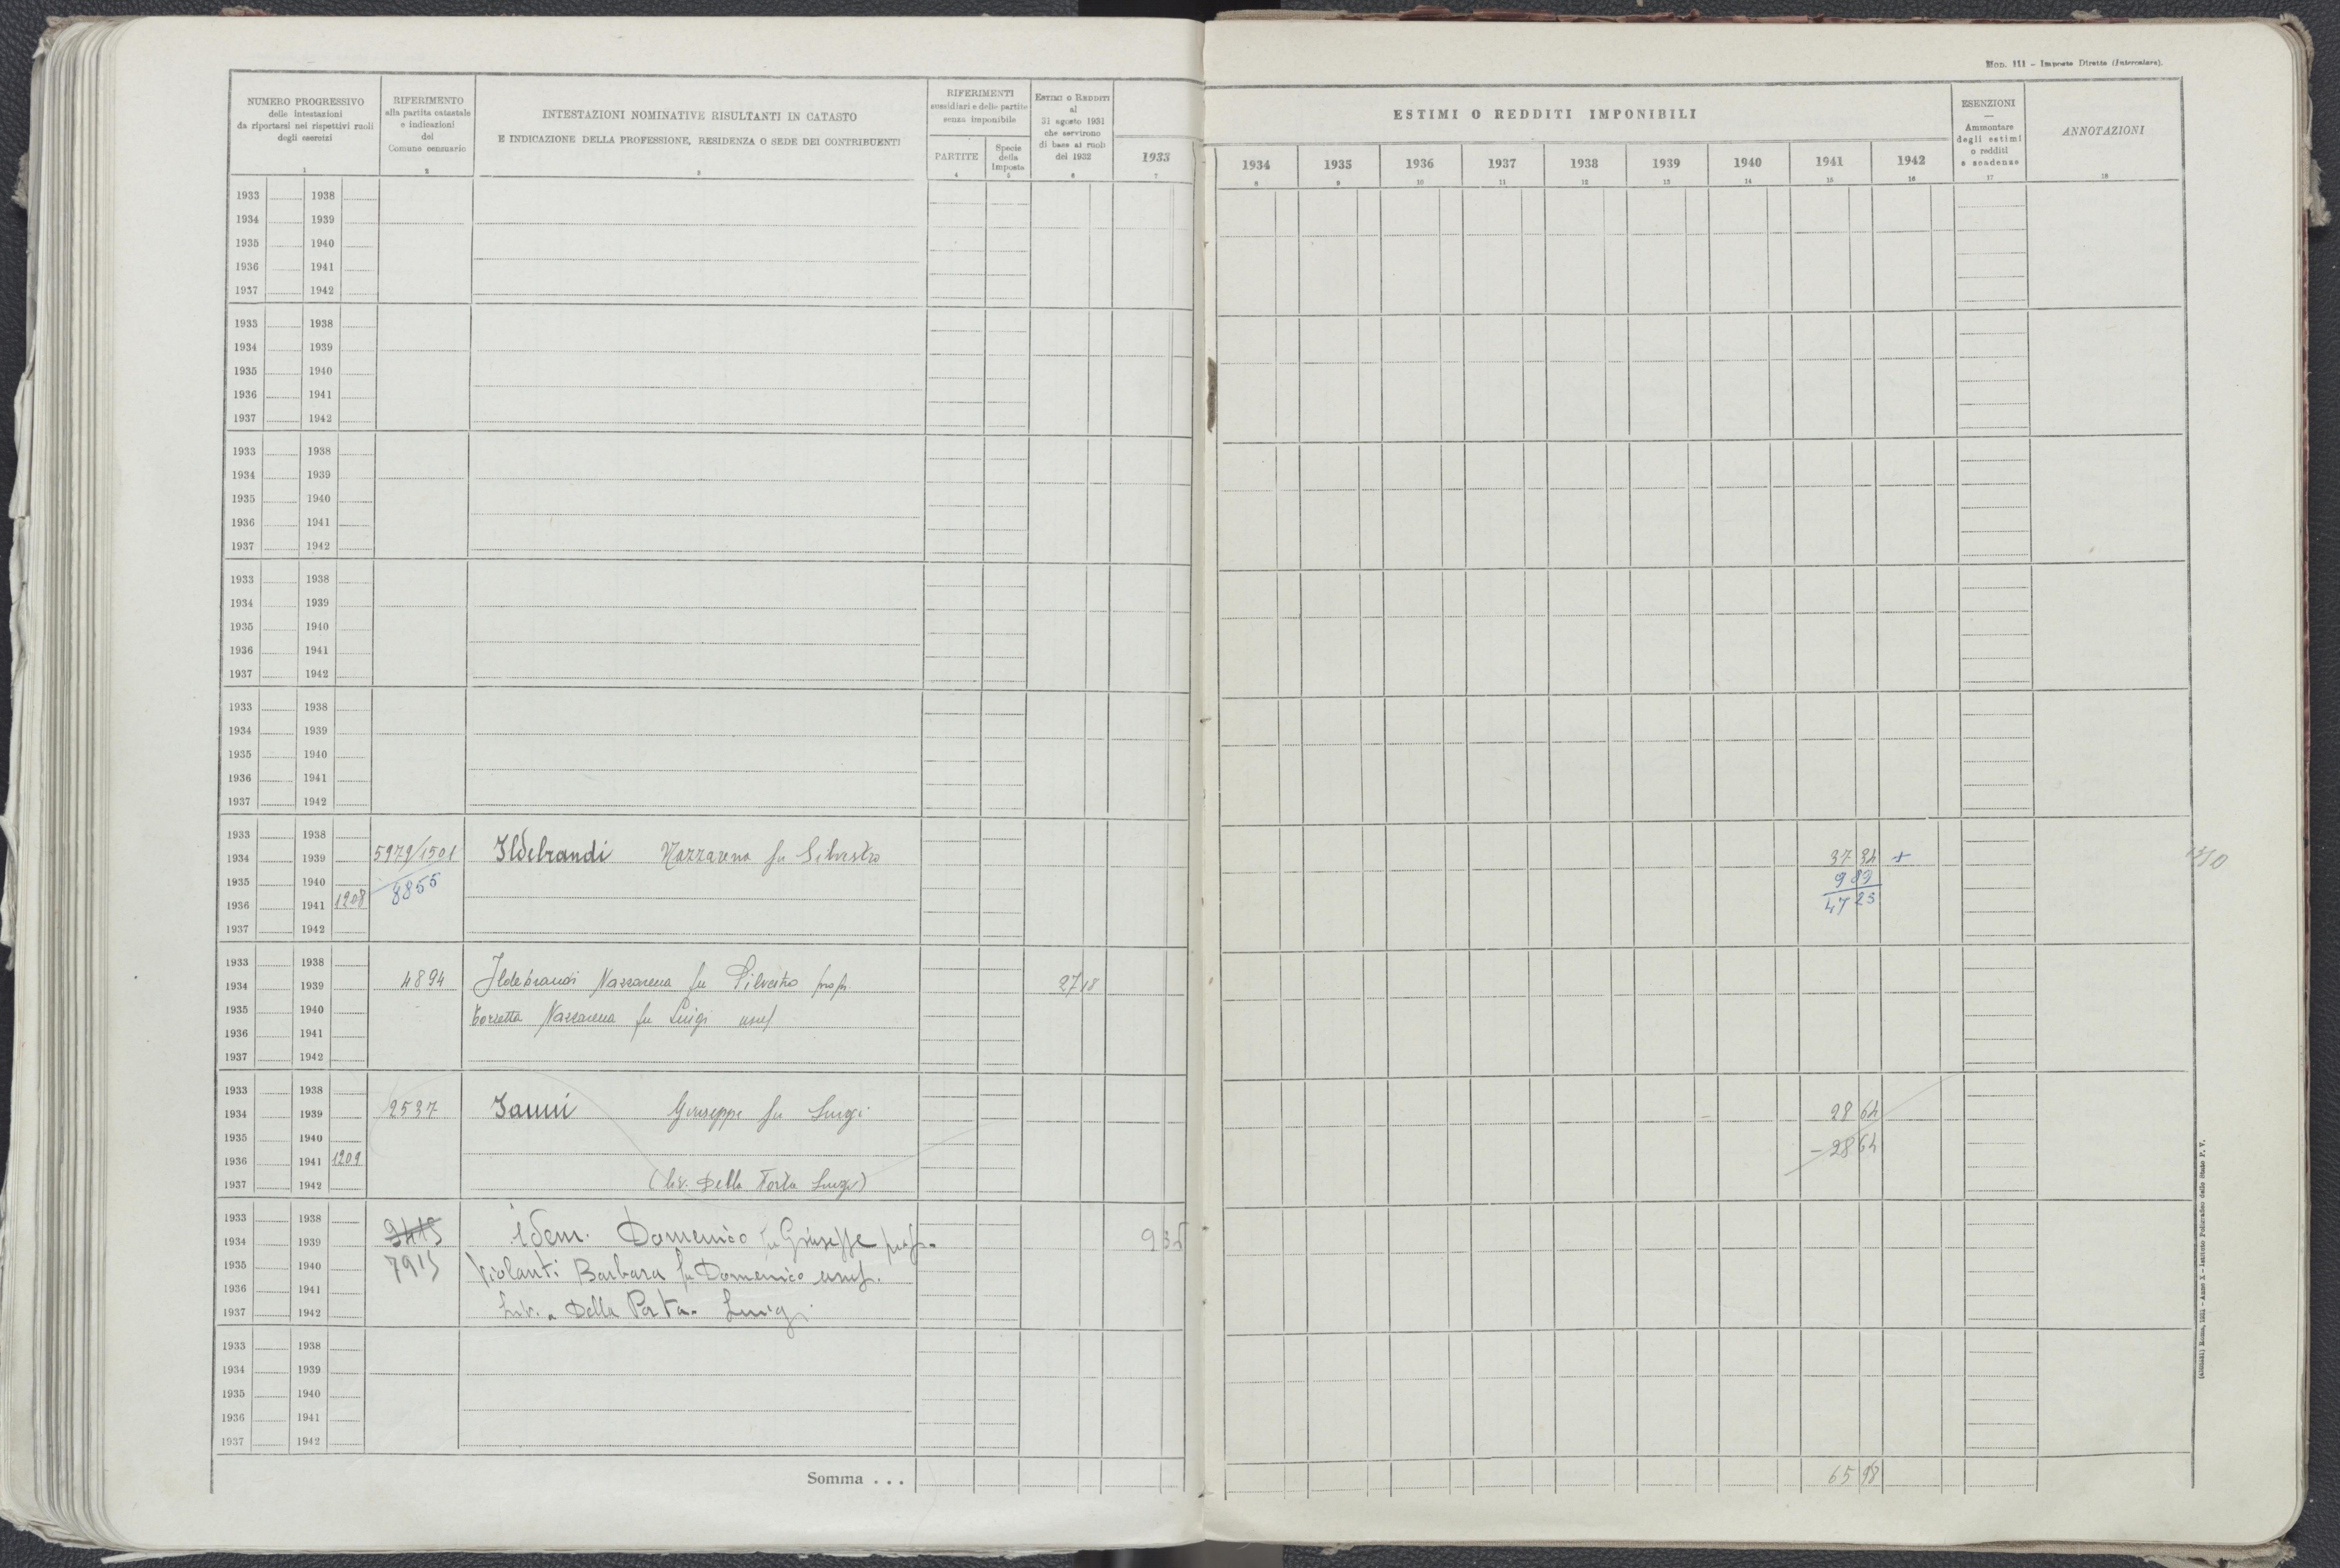 Mod. 111 – Imposte Dirette (Intercalare).
NUMERO PROGRESSIVO
delle intestazioni
da riportarsi nei rispettivi ruoli
degli esercizi
1
RIFERIMENTO
alla partita catastale
e indicazioni
del
Comune censuario
2
INTESTAZIONI NOMINATIVE RISULTANTI IN CATASTO
E INDICAZIONE DELLA PROFESSIONE, RESIDENZA O SEDE DEI CONTRIBUENTI
3
RIFERIMENTI
sussidiari e delle partite
senza imponibile
PARTITE
4
Specie
della
Imposta
5
ESTIMI O REDDITI
al
31 agosto 1931
che servirono
di base ai ruoli
del 1932
6
1933
7
ESTIMI O REDDITI IMPONIBILI
1934 1935 1936 1937 1938 1939 1940 1941 1942
8 9 10 11 12 13 14 15 16
ESENZIONI
—
Ammontare
degli estimi
o redditi
e scadenze
17
ANNOTAZIONI
18
1933 1938
1934 1939
1935 1940
1936 1941
1937 1942
1933 1938
1934 1939
1935 1940
1936 1941
1937 1942
1933 1938
1934 1939
1935 1940
1936 1941
1937 1942
1933 1938
1934 1939
1935 1940
1936 1941
1937 1942
1933 1938
1934 1939
1935 1940
1936 1941
1937 1942
1933 1938
1934 1939 5979/1501 Ildebrandi Nazzareno fu Silvestro 37 34 +
1935 1940 8855 9 89
1936 1941 1208 47 23
1937 1942
1933 1938
1934 1939 4894 Ildebrandi Nazzarena fu Silvestro prop. 27 18
1935 1940 Torretta Nazzarena fu Luigi usuf
1936 1941
1937 1942
1933 1938
1934 1939 2537 Ianni Giuseppe fu Luigi 28 64
1935 1940 – 28 64
1936 1941 1209
1937 1942 (liv. Della Porta Luigi)
1933 1938 3415
1934 1939 idem. Domenico fu Giuseppe prop.
1935 1940 7915 Violanti Barbara fu Domenico usuf.
1936 1941
1937 1942 Liv. a Della Porta Luigi
1933 1938
1934 1939
1935 1940
1936 1941
1937 1942
Somma . . . 65 98